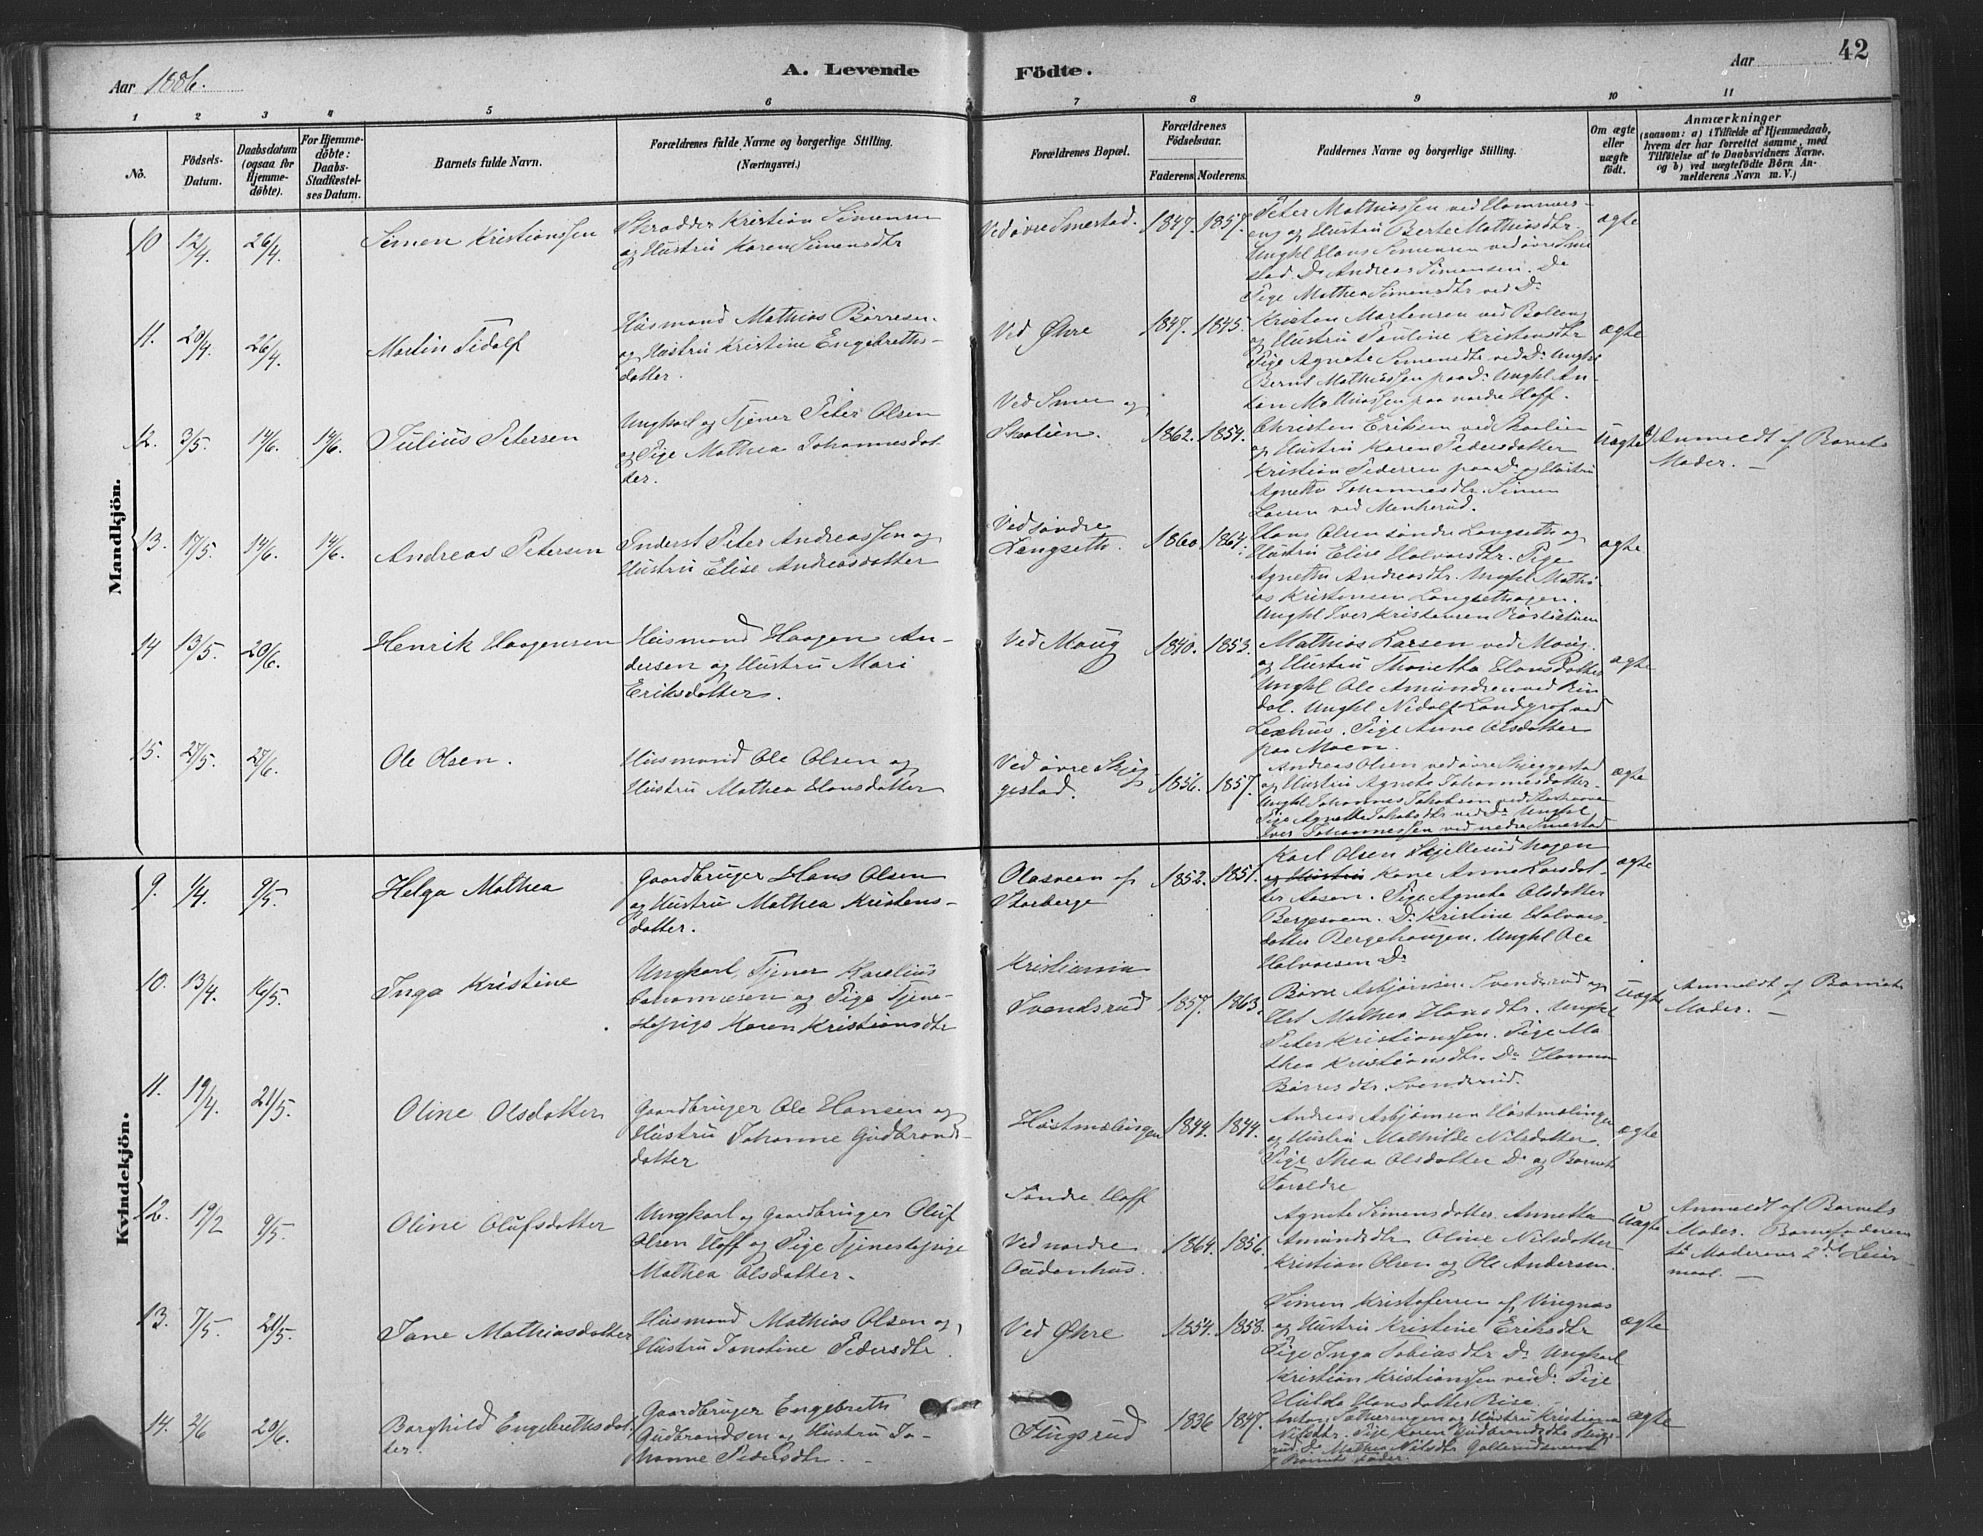 42
Aar 1886.
A. Levende Födte.
Aar
1 2 3 4 5 6 7 8 9 10 11
No.
Födsels-
Datum.
Daabsdatum
(ogsaa for
Hjemme-
döbte).
For Hjemme-
döbte:
Daabs-
Stadfæstel-
ses Datum.
Barnets fulde Navn.
Forældrenes fulde Navne og borgerlige Stilling.
(Næringsvei.)
Forældrenes Bopæl.
Forældrenes
Födselsaar.
Faderens. Moderens.
Faddernes Navne og borgerlige Stilling.
Om ægte
eller
uægte
födt.
Anmærkninger
(saasom: a) i Tilfælde af Hjemmedaab,
hvem der har forrettet samme, med
Tilföielse af to Daabsvidners Navne.
og b) ved uægtefödte Börn An-
melderens Navn m. V.)
Mandkjön.
10 12/4. 26/4. Simen Kristianssen
Skrædder Kristian Simensen
og Hustru Karen Simensdtr
Ved øvre Smestad. 1847. 1857.
Peter Mathiassen ved Hammers-
eng og Hustru Berte Mathiasdtr.
Unghl Hans Simensen ved øvre Sme
stad. Do Andreas Simensen. Do
Pige Mathea Simensdtr ved Do
ægte
11. 20/4. 26/4. Martin Sidolf
Husmand Mathias Børresen
og Hustru Kristine Engebreths-
datter.
Ved Øhre 1847. 1845.
Kristian Martensen ved
og Hustru Pauline Kristensdtr
Pige Agnete Simensdtr ved Do Unghl
Bernt Mathiassen paa Do Unghl An-
ton Mathiassen paa nordre Hoff.
ægte
12. 3/5. 14/6. 14/6. Julius Petersen
Ungkarl og Tjener Peter Olsen
og Pige Mathea Johannesdat
ter.
Ved Smu og
Skolien. 1862. 1854.
Christen Eriksen ved Skolien
og Hustru Karen Pedersdatter
Kristian Pedersen paa Do og Hustru
Agnethe Johannesdtr. Simen
Larsen ved Menkerud.
Uægte
Anmeldt af Barnets
Moder. —
13. 17/5. 14/6. 14/6. Andreas Petersen
Inderst Peter Andreassen og
Hustru Elise Andreasdatter
Ved søndre
Langseth. 1860. 1864.
Hans Olsen søndre Langseth og
Hustru Elise Halvorsdtr. Pige
Agnethe Andreasdtr. Unghl Mathi
as Kristensen Langsethagen.
Unghl Iver Kristensen
ægte
14 13/5. 20/6. Henrik Haagensen
Husmand Haagen An-
dersen og Hustru Mari
Eriksdatter.
Ved Maug 1840. 1853.
Mathias Larsen ved Maug.
og Hustru Thonetta Hansdatter
Unghl Ole Amundsen ved Rin
dal. Unghl Nidolf Landgraf ved
Lexhus. Pige Anne Olsdatter
paa Moen.
ægte
15. 27/5. 27/6. Ole Olsen.
Husmand Ole Olsen og
Hustru Mathea Hansdatter
Ved øvre Skjeg-
gestad. 1856. 1857.
Andreas Olsen ved øvre Skjeggestad
og Hustru Agnete Johannesdatter-
Unghl Johannes Jakobsen ved
Pige Agnethe Jakobsdtr ved Do Unghl
Iver Johannessen ved nedre Smestad
ægte
Kvindekjön.
9. 1/4. 9/5. Helga Mathea
Gaardbruger Hans Olsen
og Hustru Mathea Kristens-
datter.
Olasveen af
Storberge 1852. 1851.
Karl Olsen Skjellerudhagen
og Hustru Kone Anne Larsdat-
ter Aasen. Pige Agnete Olsdatter
Bergesveen. Do Kristine Halvors-
datter Bergehaugen. Unghl Ole
Halvorsen Do
ægte
10. 13/4. 16/5. Inga Kristine
Ungkarl, Tjener Karelius
Johannesen og Pige Tjene-
stepige Karen Kristiansdtr
Kristiania
Svendsrud 1857. 1863.
Børre Asbjørnsen Svendsrud og
Hst Mathea Hansdtr. Unghl
Peter Kristianssen. Pige Ma
thea Kristiansdtr. Do Hanna
Børresdtr. Svendsrud.
Uægte
Anmeldt af Barnets
Moder. —
11. 19/4. 21/5. Oline Olsdatter
Gaardbruger Ole Hansen og
Hustru Johanne Gudbrands-
datter
Høstmælingen 1844. 1844.
Andreas Asbjørnsen Høstmælingen
og Hustru Mathilde Nilsdatter.
Pige Thea Olsdatter Do og Barnets
Forældre
ægte
12. 19/2 9/5. Oline Olufsdatter
Ungkarl og Gaardbruger Oluf
Olsen Hoff og Pige Tjenestepige
Mathea Olsdatter.
Søndre Hoff
Ved nordre
Audenhus. 1864. 1856.
Agnete Simensdatter. Annette
Amundsdtr Oline Nilsdatter
Kristian Olsen og Ole Andersen.
Uægte
Anmeldt af Barnets
Moder. Barnefaderens
1ste Moderens 2det Leier-
maal. —
13. 7/5. 21/5. Jane Mathiasdatter
Husmand Mathias Olsen og
Hustru Jonetine Pedersdtr.
Ved Øhre 1854. 1858.
Simen Kristofersen af Vingnæs
og Hustru Kristine Eriksdtr
Pige Inga Tobiasdtr Do Ungkarl
Kristian Kristianssen ved Do Pige
Hulda Hansdatter Rise.
ægte
14. 2/6 20/6. Borghild Engebrethsdat-
ter
Gaardbruger Engebreth
Gudbrandsen og Hustru Jo-
hanne Pedersdtr. —
Flugsrud 1836 1847.
Anton Sætheringen og Hustru Kristiane
Nilsdtr. Pige Karen Gudbrandsdtr Flugs-
rud. Do Mathea Nilsdtr
og Barnets Fader.
ægte